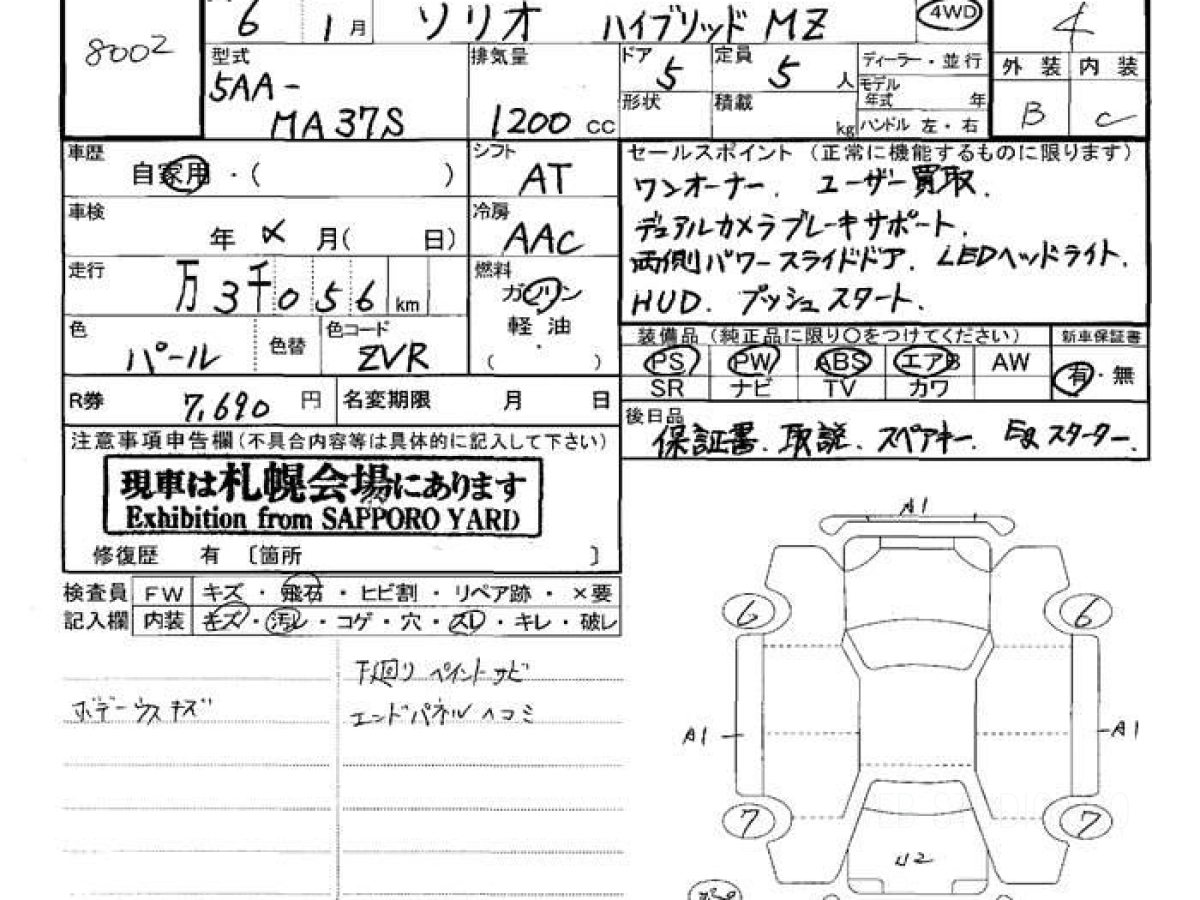 8002
6 1月 ソリオ ハイブリッド MZ 4WD 4
型式 5AA-MA37S
排気量 1200 cc
ドア 5
定員 5人
形状
積載 kg
ディーラー・並行
モデル年式 年
ハンドル 左・右
外装 内装
B C
車歴 自家用・( )
シフト AT
車検 年 〆 月( 日)
冷房 AAC
走行 万3千056km
燃料 ガソリン
軽・油
( )
色 パール
色替
色コード ZVR
R券 7,690円
名変期限 月 日
セールスポイント (正常に機能するものに限ります)
ワンオーナー. ユーザー買取.
デュアルカメラブレーキサポート.
両側パワースライドドア. LEDヘッドライト.
HUD. プッシュスタート.
装備品 (純正品に限り○をつけてください)
新車保証書
PS PW ABS エアB AW
SR ナビ TV カワ
有・無
後日品
保証書. 取説. スペアキー. Egスターター.
注意事項申告欄(不具合内容等は具体的に記入して下さい)
現車は札幌会場にあります
Exhibition from SAPPORO YARD
修復歴 有 〔箇所 〕
検査員 FW キズ・飛石・ヒビ割・リペア跡・×要
記入欄 内装 キズ・汚レ・コゲ・穴・スレ・キレ・破レ
下廻り ペイント サビ
ボデーウスキズ
エンドパネル ヘコミ
A1
6 6
A1 A1
7 7
U2